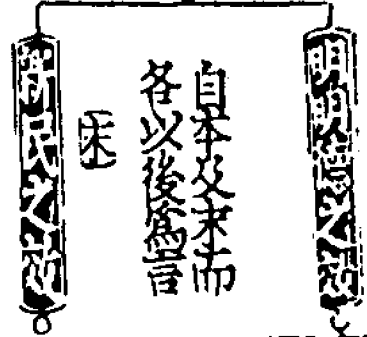 明明德之効
自本及末而
各以後爲言
末
新民之効